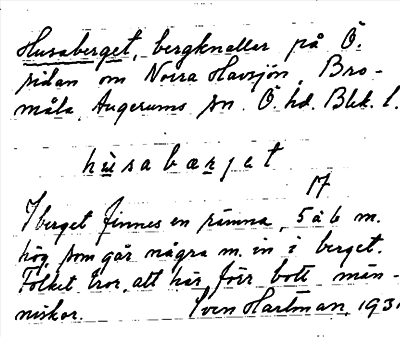 Husaberget, bergknallar på Ö.
sidan om Norra Havsjön, Bro-
måla, Augerums sn. Ö. hd. Blek. l.
hùsabærjet
17
I berget finnes en rämna, 5 à 6 m.
hög, som går några m. in i berget.
Folket tror, att här förr bott män-
niskor. Sven Hartman, 193